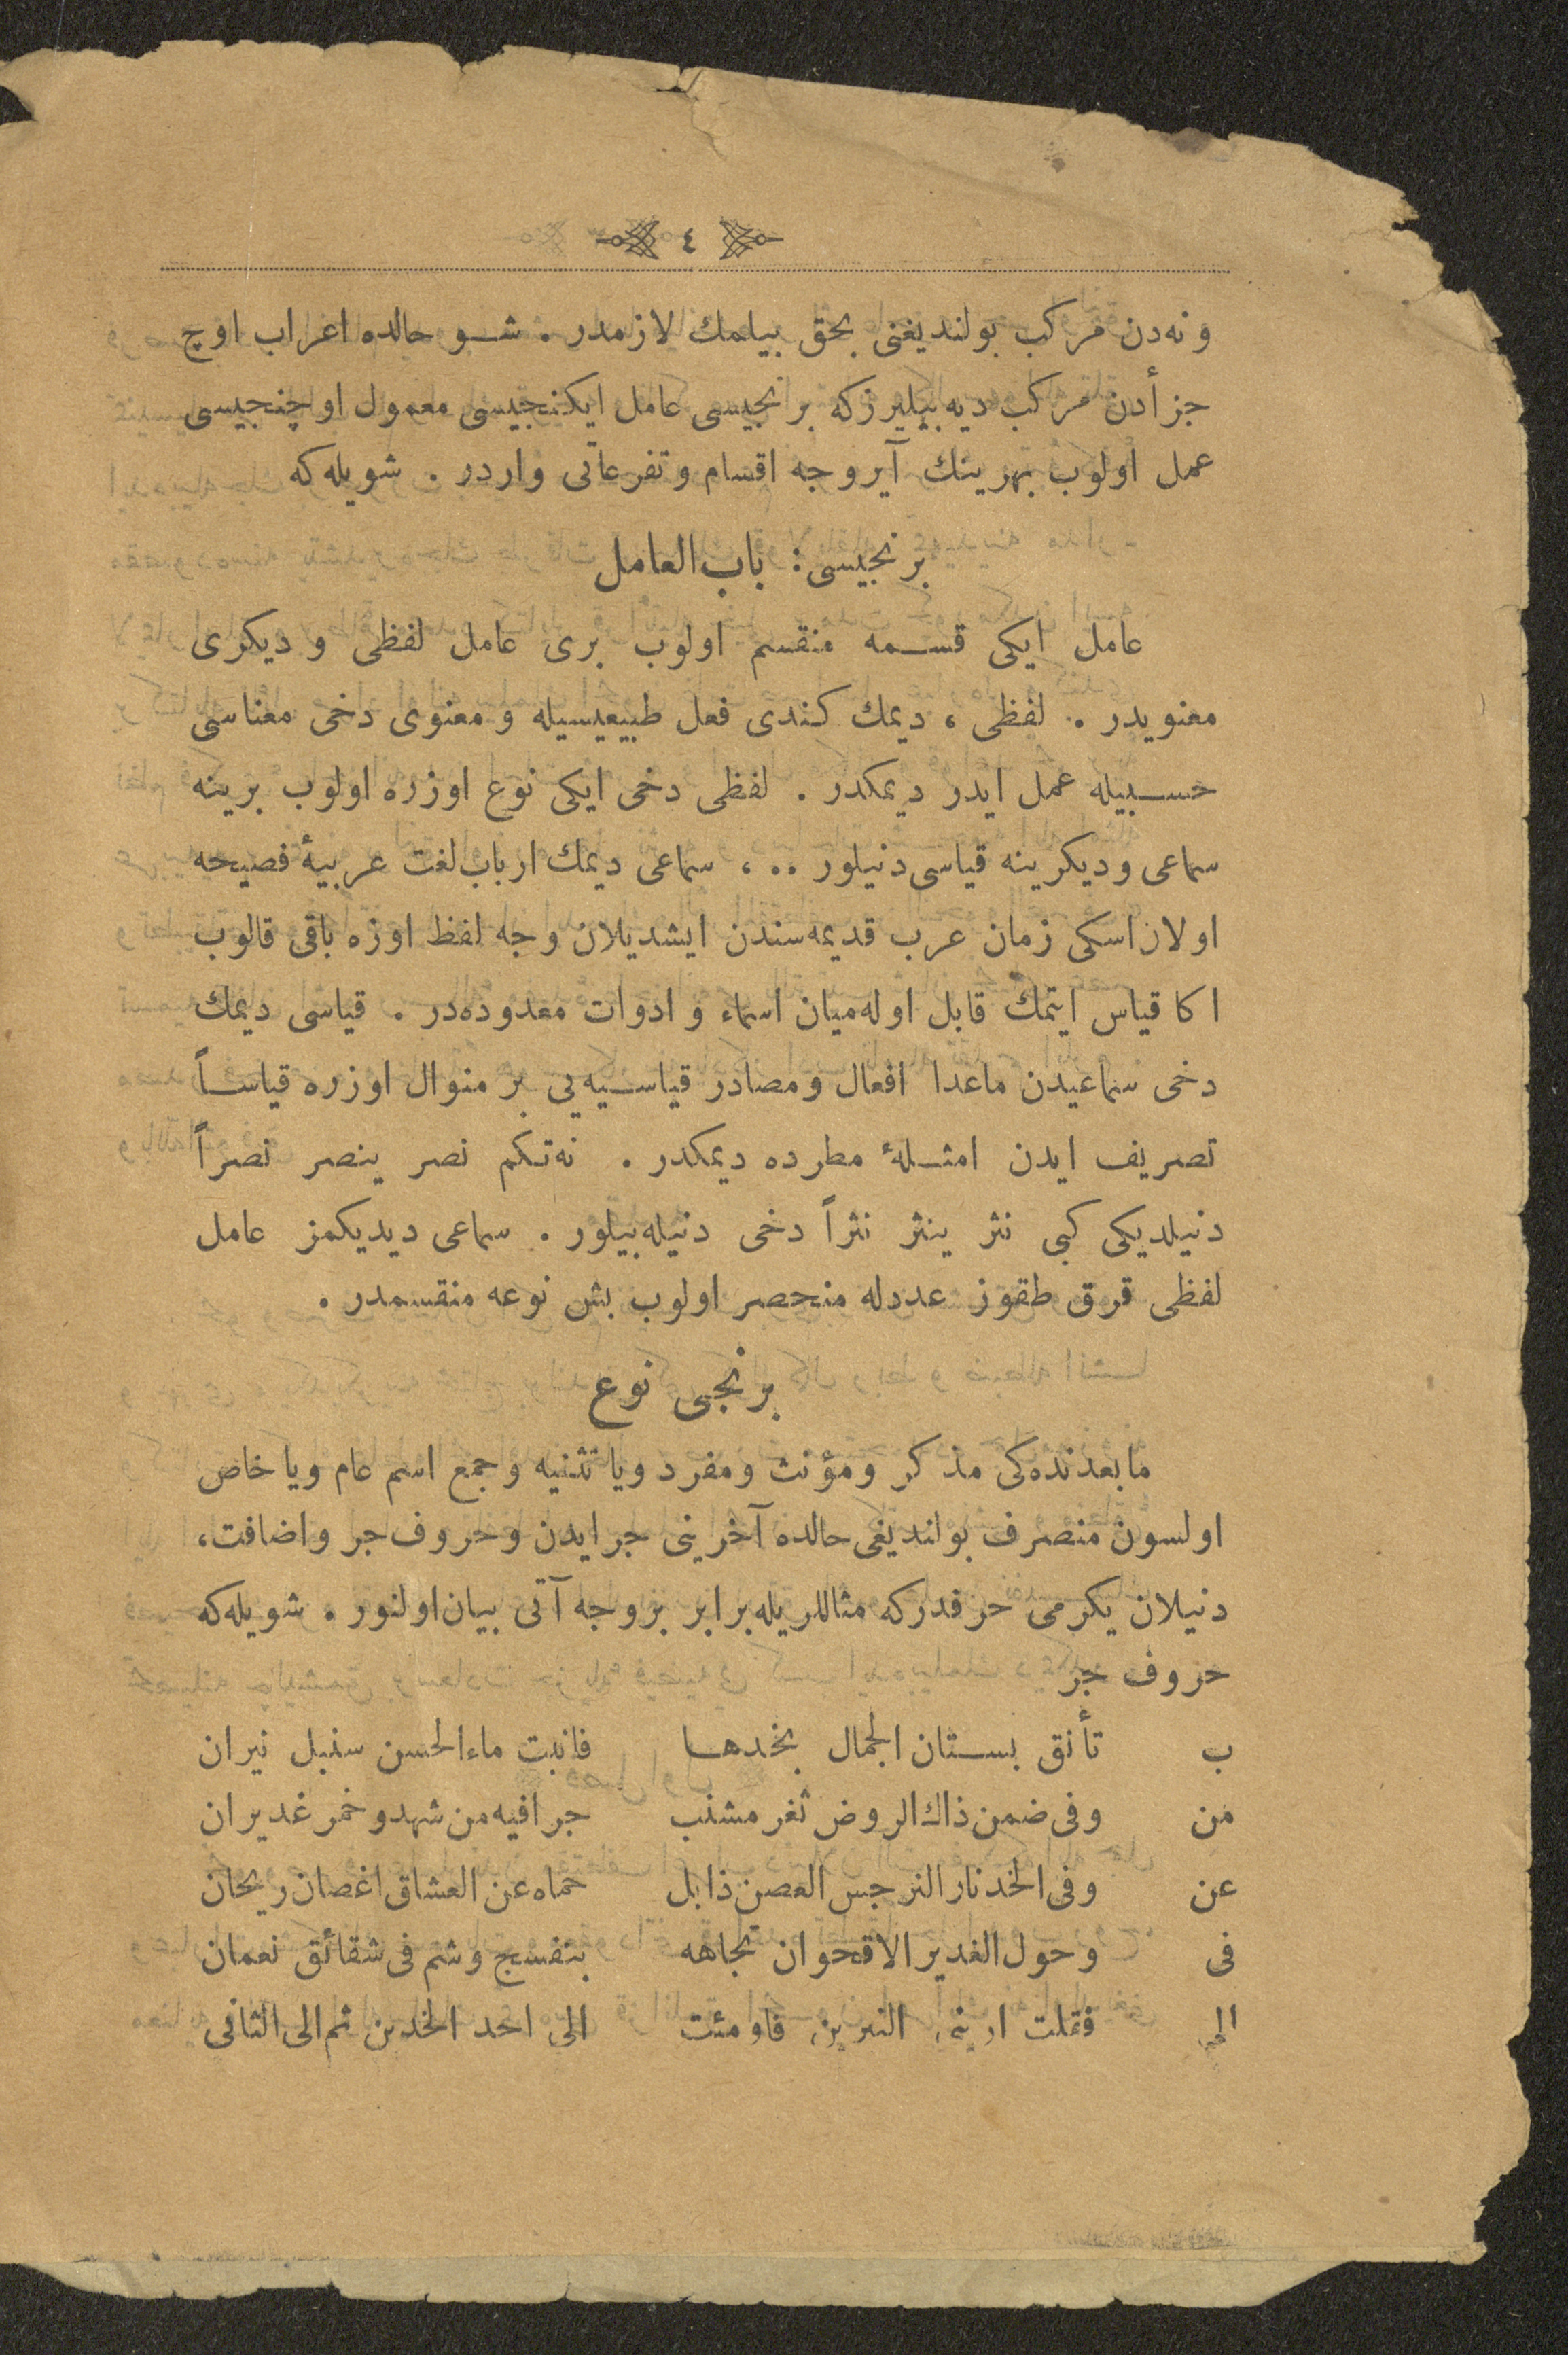 ٤
ونه‌دن مركب بولنديغنى بحق بيلمك لازمدر . شو حالده اعراب اوچ
جزأدن مركب ديه بيليرزكه برنجيسى عامل ايكنجيسى معمول اوچنجيسى
عمل اولوب بهرينك آيروجه اقسام وتفرعاتى واردر . شويله‌كه
برنجيسى : باب العامل
عامل ايكى قسمه منقسم اولوب برى عامل لفظى و ديكرى
معنويدر . لفظى ، ديمك كندى فعل طبيعيسيله و معنوى دخى معناسى
حسبيله عمل ايدر ديمكدر . لفظى دخى ايكى نوع اوزره اولوب برينه
سماعى وديكرينه قياسى دنيلور .. ، سماعى ديمك ارباب لغت عربيۀ فصيحه
اولان اسكى زمان عرب قديمه‌سندن ايشديلان وجه لفظ اوزه باقى قالوب
اكا قياس ايتمك قابل اوله‌ميان اسماء و ادوات معدوده‌در . قياسى ديمك
دخى سماعيدن ماعدا افعال ومصادر قياسيه‌يى بر منوال اوزره قياساً
تصريف ايدن امثلۀ مطرده ديمكدر . نه‌تكم نصر ينصر نصراً
دنيلديكى كبى نثر ينثر نثراً دخى دنيله‌بيلور . سماعى ديديكمز عامل
لفظى قرق طقوز عددله منحصر اولوب بش نوعه منقسمدر .
برنجى نوع
مابعدنده‌كى مذكر ومؤنث ومفرد ويا تثنيه وجمع اسم عام ويا خاص
اولسون منصرف بولنديغى حالده آخرينى جر ايدن وحروف جر واضافت،
دنيلان يكرمى حرفدركه مثاللريله برابر بروجه آتى بيان اولنور . شويله‌كه
حروف جر
ب تأنق بستان الجمال بخدها فانبت ماء الحسن سنبل نيران
من وفى ضمن ذاك الروض ثغر مشنب جرافيه من شهد وخمر غديران
عن وفى الخد نار النرجس الغصن ذابل حماه عن العشاق اغصان ريحان
فى وحول الغدير الاقحوان تجاهه بنفسج وشم فى شقائق نعمان
الى فقلت ارينى النيرين فاومئت الى احد الخدين ثم الى الثانى